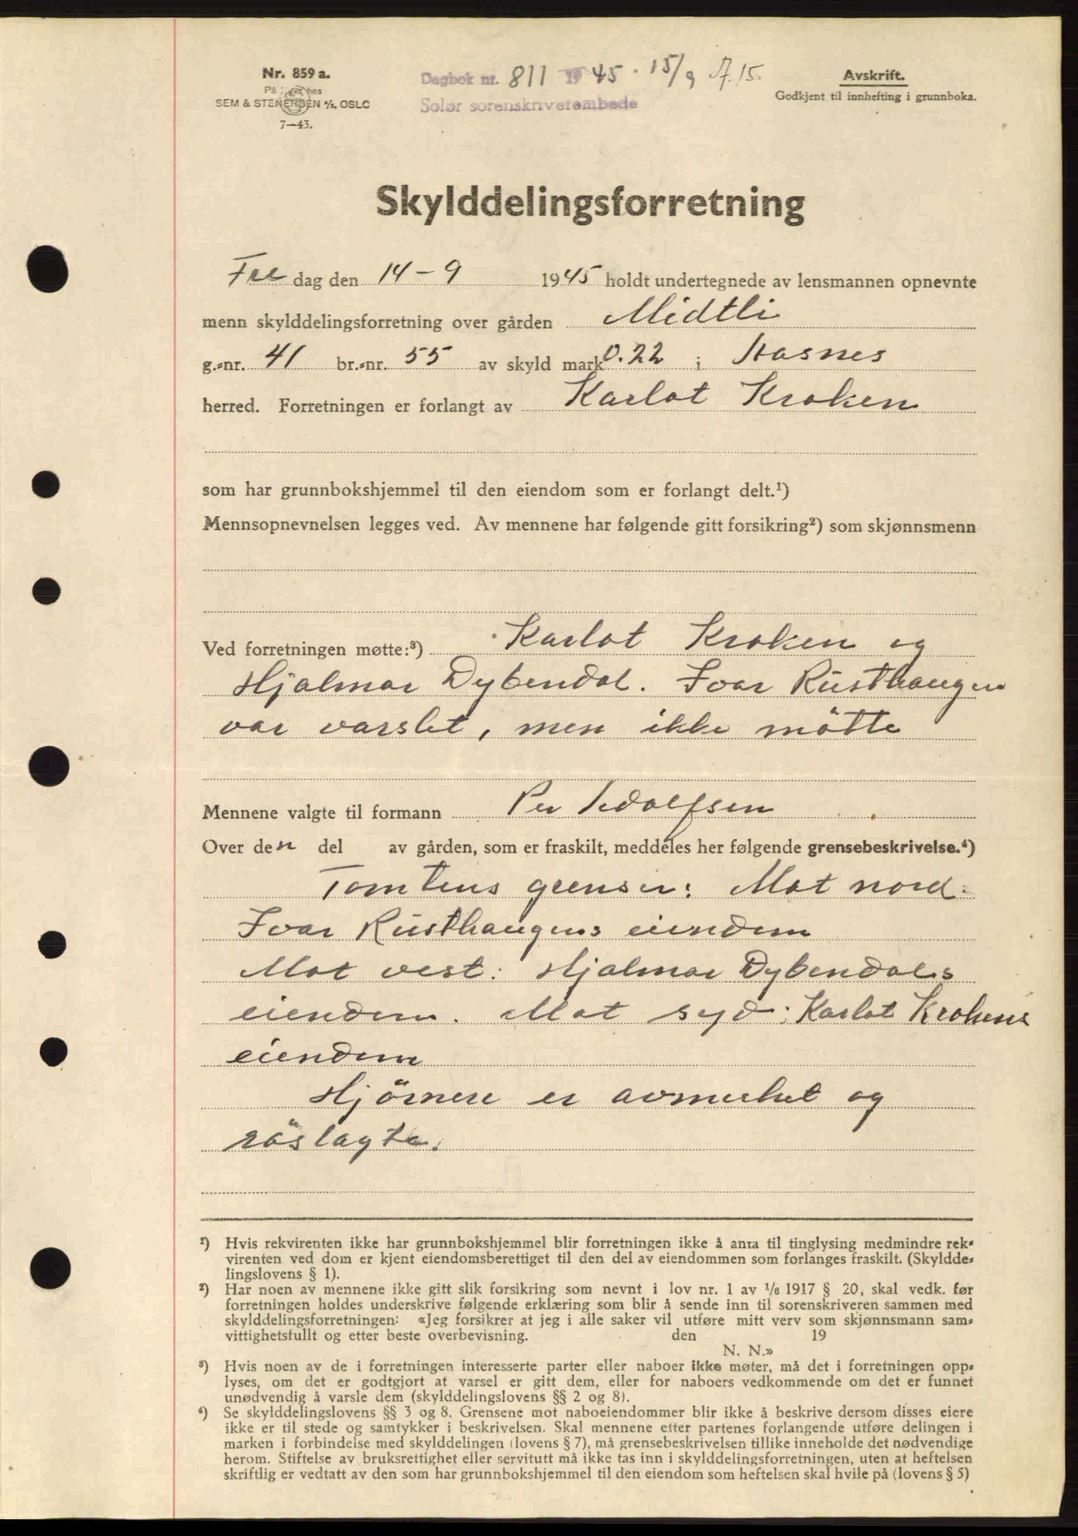 Nr. 859 a.
SEM & STENERSEN A/S, OSLO
7—43.
Dagbok nr. 811 1945 · 15/9 A. 15.
Solør sorenskriverembede
Avskrift.
Godkjent til innhefting i grunnboka.
Skylddelingsforretning
Fre dag den 14-9 1945 holdt undertegnede av lensmannen opnevnte
menn skylddelingsforretning over gården Midtli
g.-nr. 41 br.-nr. 55 av skyld mark 0.22 i Hasnes
herred. Forretningen er forlangt av Karlot Kroken
som har grunnbokshjemmel til den eiendom som er forlangt delt.¹)
Mennsopnevnelsen legges ved. Av mennene har følgende gitt forsikring²) som skjønnsmenn
Ved forretningen møtte:³) Karlot Kroken og
Hjalmar Dybendal. Ivar Rusthaugen
var varslet, men ikke mötte
Mennene valgte til formann Per Adolfsen
Over den del av gården, som er fraskilt, meddeles her følgende grensebeskrivelse.⁴)
Tomtens grenser: Mot nord:
Ivar Rusthaugens eiendom
Mot vest: Hjalmar Dybendals
eiendom. Mot syd: Karlot Krokens
eiendom
Hjörnene er avmerket og
röslagte.
¹) Hvis rekvirenten ikke har grunnbokshjemmel blir forretningen ikke å anta til tinglysing medmindre rek-
virenten ved dom er kjent eiendomsberettiget til den del av eiendommen som forlanges fraskilt. (Skyldde-
lingslovens § 1).
²) Har noen av mennene ikke gitt slik forsikring som nevnt i lov nr. 1 av 1/6 1917 § 20, skal vedk. før
forretningen holdes underskrive følgende erklæring som blir å sende inn til sorenskriveren sammen med
skylddelingsforretningen: «Jeg forsikrer at jeg i alle saker vil utføre mitt verv som skjønnsmann sam-
vittighetsfullt og etter beste overbevisning. den 19
N. N.»
³) Hvis noen av de i forretningen interesserte parter eller naboer ikke møter, må det i forretningen opp-
lyses, om det er godtgjort at varsel er gitt dem, eller for naboers vedkommende om det er funnet
unødvendig å varsle dem (skylddelingslovens §§ 2 og 8).
⁴) Se skylddelingslovens §§ 3 og 8. Grensene mot naboeiendommer blir ikke å beskrive dersom disses eiere
ikke er til stede og samtykker i beskrivelsen. Skal mennene etter partenes forlangende utføre delingen i
marken i forbindelse med skylddelingen (lovens § 7), må grensebeskrivelsen tillike inneholde det nødvendige
herom. Stiftelse av bruksrettighet eller servitutt må ikke tas inn i skylddelingsforretningen, uten at heftelsen
skriftlig er vedtatt av den som har grunnbokshjemmel til den eiendom som heftelsen skal hvile på (lovens § 5)